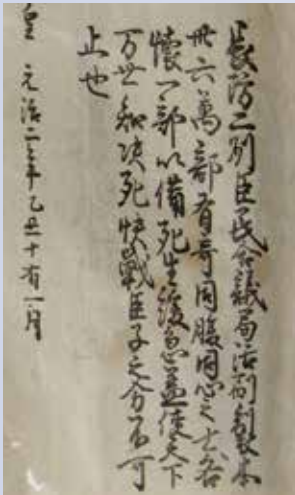 長防二州臣民合議局活刷製本
卅六萬部有奇同腹同心之士各
懐一部以備死生緩急蓋使天下
万世知決死快戰臣子之分不可
止也
皇 元治二年乙丑十有一月